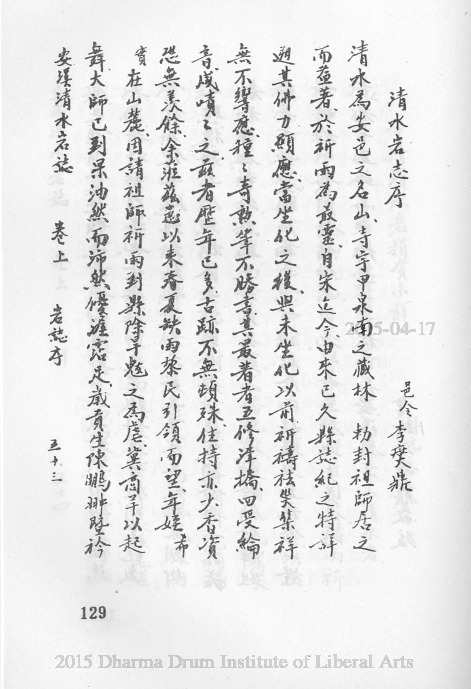 清水岩志序
邑令李㷍
清水為安邑之名山、寺宇甲泉南之藏林、勅封祖師居之
而益著、於祈雨為最靈、自宋迄今、由來已久、縣誌紀之特詳
遡其佛力顯應、當坐化之後、與未坐化以前、祈禱祛災集祥
無不響應、種々奇勲、筆不勝書、其最著者五修洋橋、四受綸
音、茂嘖々之頌者、歷年已多、古跡不無頓殊、住持亦少香資
恐無羨餘、余涖茲邑以來、春夏缺雨、黎民引領而望、年姪希
實在山麓、因請祖師祈雨到縣、除旱魃之為虐、冀商羊以起
舞、大師已到、果油然而沛然、優渥霑足、歲貢生陳鵬翀暨衿
安溪清水岩誌 卷上 岩誌序 五十三
129
2015-04-17
2015 Dharma Drum Institute of Liberal Arts